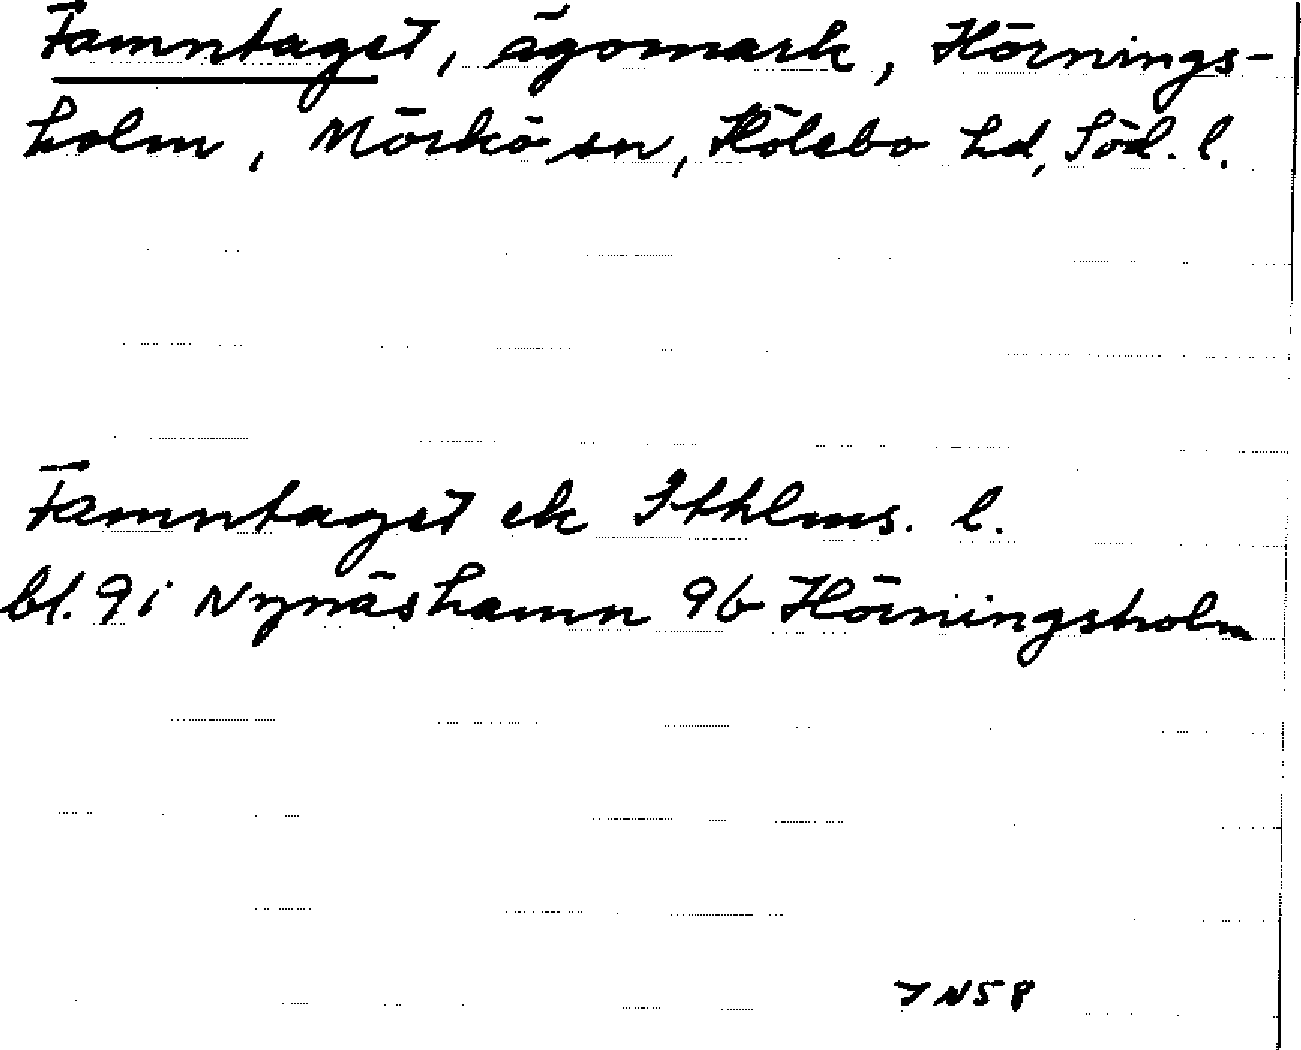 Famntaget, ägomark, Hörnings-
holm, Mörkö sn, Hölebo hd, Söd. l.
Famntaget ek Sthlms. l.
bl. 9i Nynäshamn 9b Hörningsholm
7N58